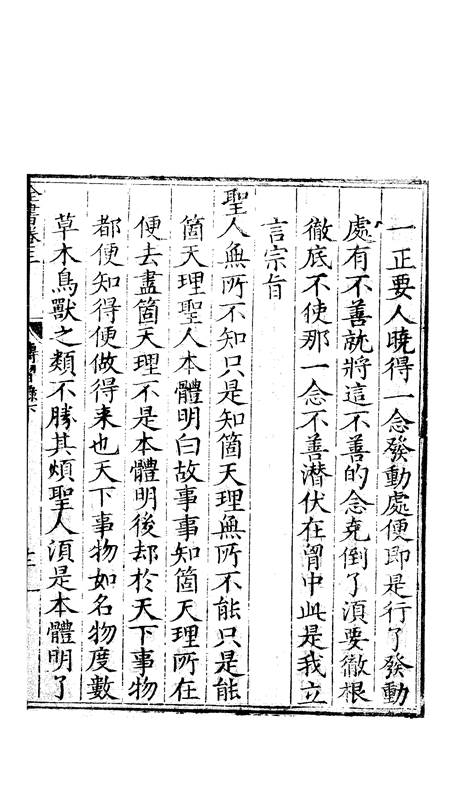 一正要人曉得一念發動處便即是行了發動
處有不善就將這不善的念克倒了須要徹根
徹底不使那一念不善潛伏在胷中此是我立
言宗旨
聖人無所不知只是知箇天理無所不能只是能
箇天理聖人本體明白故事事知箇天理所在
便去盡箇天理不是本體明後却於天下事物
都便知得便做得来也天下事物如名物度數
草木鳥獸之類不勝其煩聖人須是本體明了
全書卷三
傳習錄下